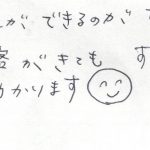 が できるのが
客 がきても す
かります